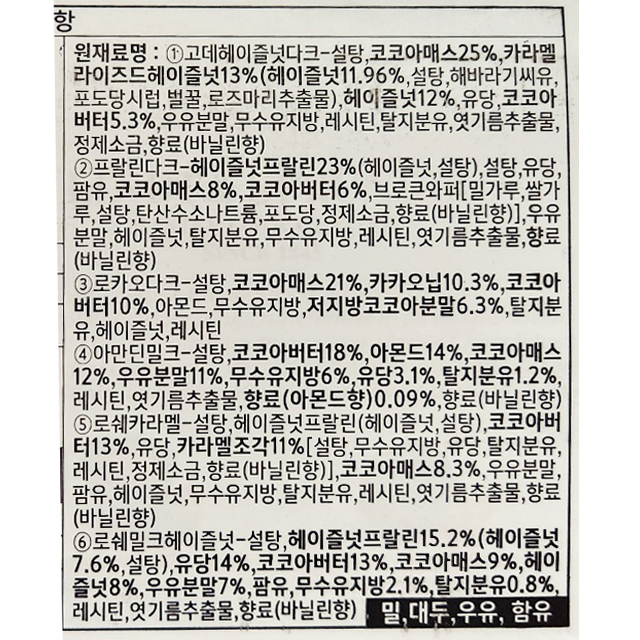 항
원재료명 : ①고데헤이즐넛다크-설탕,코코아매스25%,카라멜
라이즈드헤이즐넛13%(헤이즐넛11.96%,설탕,해바라기씨유,
포도당시럽,벌꿀,로즈마리추출물),헤이즐넛12%,유당,코코아
버터5.3%,우유분말,무수유지방,레시틴,탈지분유,엿기름추출물,
정제소금,향료(바닐린향)
②프랄린다크-헤이즐넛프랄린23%(헤이즐넛,설탕),설탕,유당,
팜유,코코아매스8%,코코아버터6%,브로큰와퍼[밀가루,쌀가
루,설탕,탄산수소나트륨,포도당,정제소금,향료(바닐린향)],우유
분말,헤이즐넛,탈지분유,무수유지방,레시틴,엿기름추출물,향료
(바닐린향)
③로카오다크-설탕,코코아매스21%,카카오닙10.3%,코코아
버터10%,아몬드,무수유지방,저지방코코아분말6.3%,탈지분
유,헤이즐넛,레시틴
④아만딘밀크-설탕,코코아버터18%,아몬드14%,코코아매스
12%,우유분말11%,무수유지방6%,유당3.1%,탈지분유1.2%,
레시틴,엿기름추출물,향료(아몬드향)0.09%,향료(바닐린향)
⑤로쉐카라멜-설탕,헤이즐넛프랄린(헤이즐넛,설탕),코코아버
터13%,유당,카라멜조각11%[설탕,무수유지방,유당,탈지분유,
레시틴,정제소금,향료(바닐린향)],코코아매스8.3%,우유분말,
팜유,헤이즐넛,무수유지방,탈지분유,레시틴,엿기름추출물,향료
(바닐린향)
⑥로쉐밀크헤이즐넛-설탕,헤이즐넛프랄린15.2%(헤이즐넛
7.6%,설탕),유당14%,코코아버터13%,코코아매스9%,헤이
즐넛8%,우유분말7%,팜유,무수유지방2.1%,탈지분유0.8%,
레시틴,엿기름추출물,향료(바닐린향) 밀,대두,우유, 함유